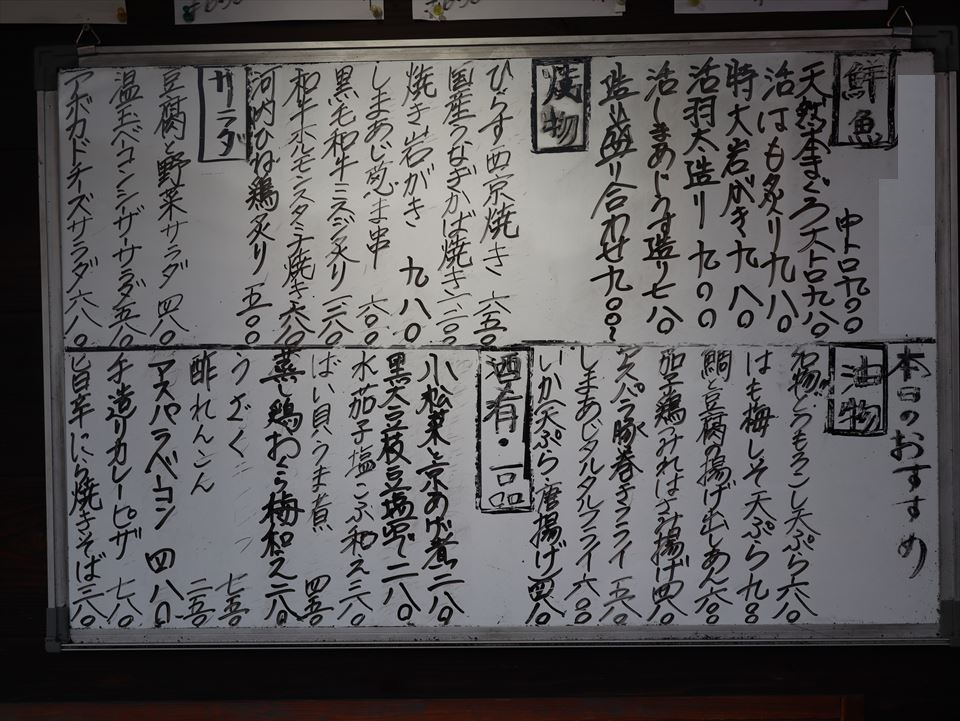 本日のおすすめ
鮮魚
天然本まぐろ大トロ九八〇
中トロ九〇〇
活はも炙り九八〇
特大岩がき九八〇
活羽太造り九〇〇
活しまあじうす造り七八〇
造り盛り合わせ九〇〇〜
焼物
ひらす西京焼き 六五〇
国産うなぎかば焼き一二〇〇
焼き岩がき 九八〇
しまあじねぎま串 六〇〇
黒毛和牛ミスジ炙り 一二八〇
和牛ホルモンスタミナ焼き六八〇
河内ひね鶏炙り 五〇〇
サラダ
豆腐と野菜サラダ 四八〇
温玉ベーコンシーザーサラダ五八〇
アボカドチーズサラダ六八〇
油物
初物とうもろこし天ぷら六八〇
はも梅しそ天ぷら九八〇
鯛と豆腐の揚げ出しあん六八〇
茄子鶏みれはさみ揚げ四八〇
アスパラ豚巻きフライ 五八〇
しまあじタルタルフライ六〇〇
いか天ぷら・唐揚げ四八〇
酒肴・一品
小松菜と京あげ煮二八〇
黒大豆枝豆塩ゆで二八〇
水茄子塩こぶ和え三八〇
ばい貝うま煮 四五〇
蒸し鶏おろし梅和え二八〇
うざく 七五〇
酢れんこん 二五〇
アスパラベーコン 四八〇
手造りカレーピザ 七八〇
旨辛にら焼きそば三八〇